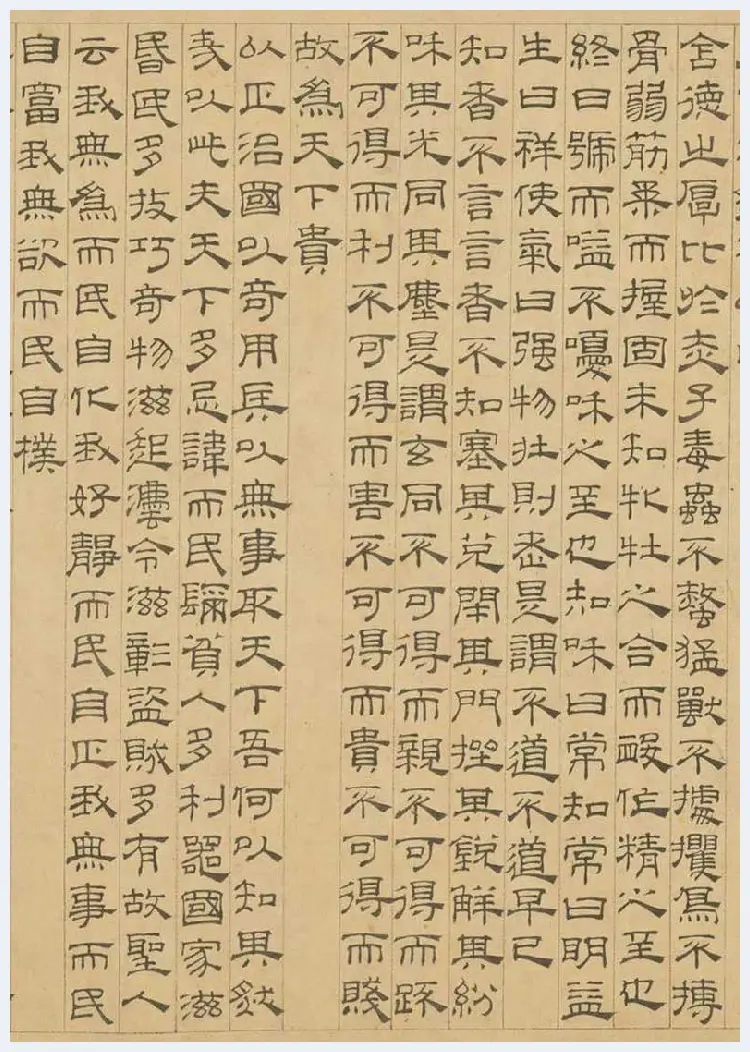 含德之厚比於赤子毒蟲不螫猛獸不據攫鳥不搏
骨弱筋柔而握固未知牝牡之合而朘作精之至也
終日號而嗌不嚘和之至也知和曰常知常曰明益
生曰祥使氣曰强物壯則老是謂不道不道早已
知者不言言者不知塞其兌閉其門挫其銳解其紛
和其光同其塵是謂玄同不可得而親不可得而踈
不可得而利不可得而害不可得而貴不可得而賤
故為天下貴
以正治國以奇用兵以無事取天下吾何以知其然
哉以此夫天下多忌諱而民彌貧人多利器國家滋
昏民多技巧奇物滋起灋令滋彰盜賊多有故聖人
云我無為而民自化我好靜而民自正我無事而民
自富我無欲而民自樸